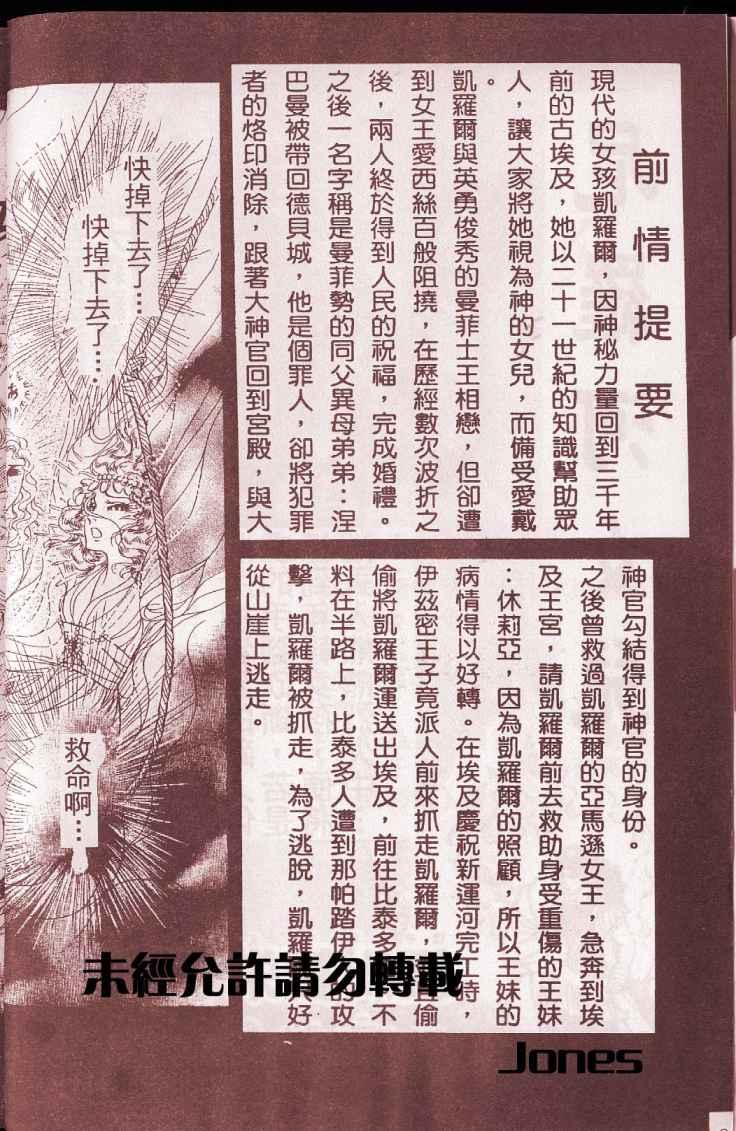 前情提要
現代的女孩凱羅爾，因神秘力量回到三千年
前的古埃及，她以二十一世紀的知識幫助眾
人，讓大家將她視為神的女兒，而備受愛戴
。
凱羅爾與英勇俊秀的曼菲士王相戀，但卻遭
到女王愛西絲百般阻撓，在歷經數次波折之
後，兩人終於得到人民的祝福，完成婚禮。
之後一名字稱是曼菲勢的同父異母弟弟：涅
巴曼被帶回德貝城，他是個罪人，卻將犯罪
者的烙印消除，跟著大神官回到宮殿，與大
神官勾結得到神官的身份。
之後曾救過凱羅爾的亞馬遜女王，急奔到埃
及王宮，請凱羅爾前去救助身受重傷的王妹
：休莉亞，因為凱羅爾的照顧，所以王妹的
病情得以好轉。在埃及慶祝新運河完工時，
伊茲密王子竟派人前來抓走凱羅爾，且偷
偷將凱羅爾運送出埃及，前往比泰多，不
料在半路上，比泰多人遭到那帕踏伊的攻
擊，凱羅爾被抓走，為了逃脫，凱羅只好
從山崖上逃走。
快掉下去了…
快掉下去了…．
救命啊…
未經允許請勿轉載
Jones